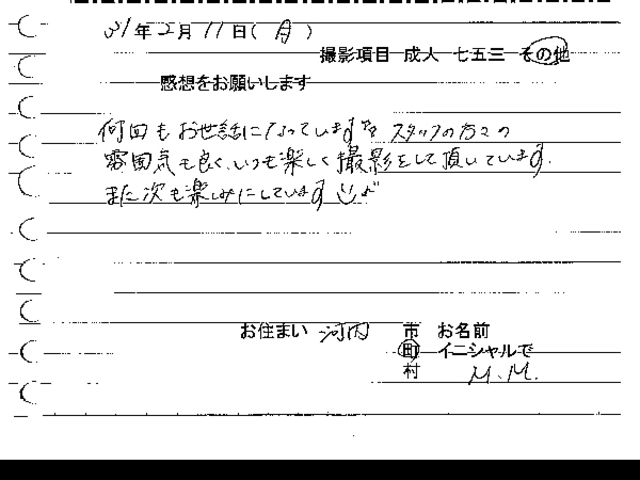 31年2月11日(月)
撮影項目 成人 七五三 その他
感想をお願いします
何回もお世話になっています。スタッフの方々の
雰囲気も良く、いつも楽しく撮影をして頂いています。
また次も楽しみにしています
お住まい 河内 市 お名前
町 イニシャルで
村 M.M.